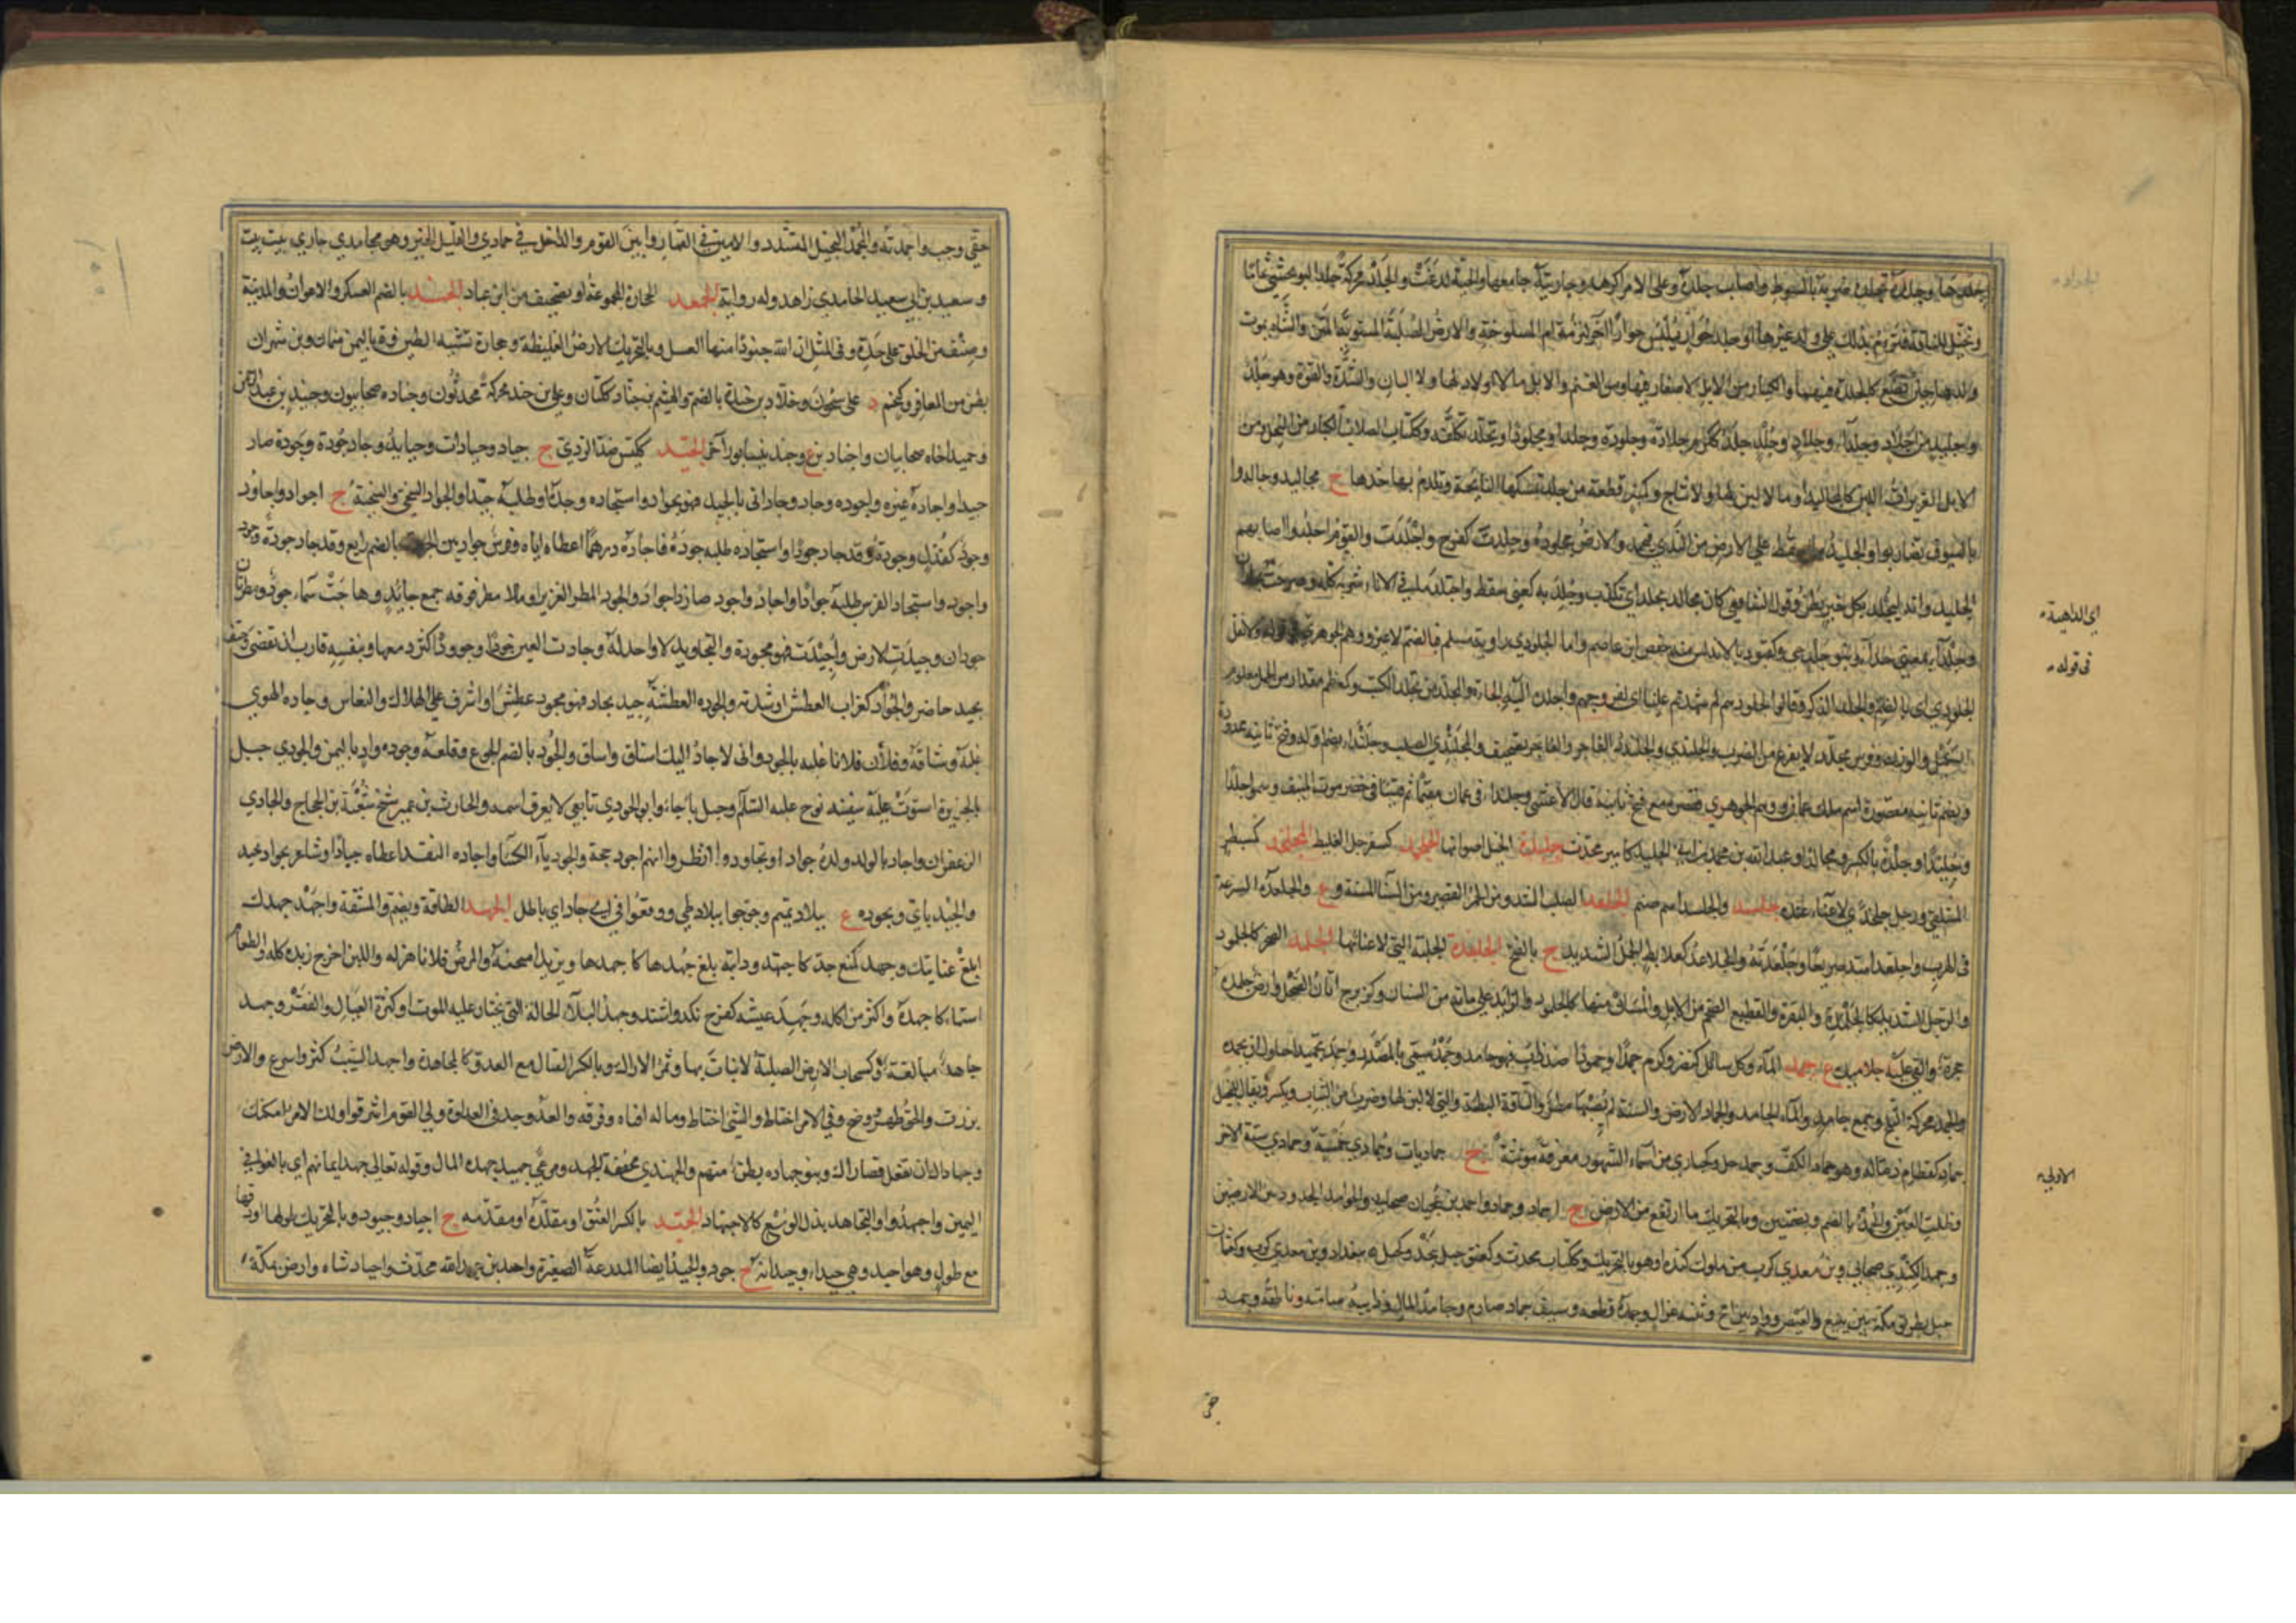 وجلده تجليدا ضربه بالسوط واصاب جلده وعلى الامر اكرهه وجاريته جامعها والحية لدغت والجلد محركة جلد البو يحشى ثماما
ويخيل للناقة فترأم بذلك على ولد غيرها او جلد حوار يلبس حوارا اخر لترأمه ام المسلوخة والارض الصلبة المستوية المتن والشاة يموت
ولدها حين تضع كالجلدة فيهما والكبار من الابل لا صغار فيها ومن الغنم والابل ما لا اولاد لها ولا البان والشدة والقوة وهو جلد
وجليد من اجلاد وجلداء وجلاد وجلد جلد ككرم جلادة وجلودة وجلدا ومجلودا وتجلد تكلفه وككتاب الصلاب الكبار من النخل ومن
الابل الغزيرات اللبن كالمجاليد او ما لا لبن لها ولا نتاج وكمنبر قطعة من جلد تمسكها النائحة وتلدم بها خدها ج مجاليد وجالدوا
بالسيوف تضاربوا والجليد ما يسقط على الارض من الندى فيجمد والارض مجلودة وجلدت كفرح واجلدت والقوم اجلدوا اصابهم
الجليد وانه ليجلد بكل خير يظن وقول الشافعي كان مجالد يجلد اي يكذب وجلد به كعني سقط واجتلد ما في الاناء شربه كله وصرحت بجلدان
وجلداء بمعنى جداء وبنو جلد حي وكقبول ة بالاندلس منه حفص بن عاصم واما الجلودي راوية مسلم فبالضم لا غير ووهم الجوهري في قوله ولا تقل
الجلودي اي بالضم والجلد الذكر وقالوا لجلودهم لم شهدتم علينا اي لفروجهم واجلده اليه الجأه والمجلد من يجلد الكتب وكمعظم مقدار من الحمل معلوم
الكيل والوزن وفرس مجلد لا يفزع من الضرب والجلندى والجلندد الفاجر والفاجر تصحيف والجلندى الصلب وجلنداء بضم اوله وفتح ثانيه ممدودة
وبضم ثانيه مقصورة اسم ملك عمان ووهم الجوهري فقصره مع فتح ثانيه قال الاعشى وجلنداء في عمان مقيما ثم قيسا في حضرموت المنيف وسموا جلدا
وجليدا وجلدة بالكسر ومجالدا وعبد الله بن محمد بن ابي الجليد كامير محدث جلبدة الخيل اصواتها الجلحمد كسفرجل الغليظ المجلخد كمسبطر
المستلقي ورجل جلخدى لا غناء عنده جلسد والجلسد اسم صنم الجلعد الصلب الشديد ومن الحمر القصير ومن النساء المسنة وع والجلعدة السرعة
في الهرب واجلعد امتد سريعا وجلعدته والجلاعد كعلابط الجمل الشديد ج بالفتح الجلفدة الجلبة التي لا غناء لها الجلمد الصخر كالجلمود
والرجل الشديد كالجلمد والبقرة والقطيع الضخم من الابل والمسان منها كالجلمود والزائد على مائة من الضان وكزبرج اتان الضحل وارض جلمدة
حجرة والقى عليه جلاميده ع جمد الماء وكل سائل كنصر وكرم جمدا وجمودا ضد ذاب فهو جامد وجمد سمي بالمصدر وجمد تجميدا حاول ان يجمد
والجمد محركة الثلج وجمع جامد والماء الجامد والجماد الارض والسنة لم يصبها مطر والناقة البطيئة والتي لا لبن لها وضرب من الثياب ويكسر ويقال للبخيل
جماد كقطام ذم له وهو جماد الكف وجمد بخل وكحبارى من اسماء الشهور معرفة مؤنثة ج جماديات وجمادى خمسة وجمادى ستة الاخر
وظلت العين والجمد بالضم وبضمتين وبالتحريك ما ارتفع من الارض ج اجماد وجماد واحمد بن عجيان صحابي والجوامد الحدود بين الارضين
وجمد الكندي صحابي وبن معدي كرب من ملوك كندة او هو بالتحريك وككتاب محدث وكعنق جبل بنجد وكجبل ة ببغداد وبن معدي كرب وكعثمان
جبل بطريق مكة بين ينبع والعيص وواد بين امج وثنية غزال وجمده قطعه وسيف جماد صارم وجامد المال وذائبه صامته وناطقه وجمد
اي الداهية
في قوله
الاولى
حقي
حقي وجب واجمدته والمجمد البخيل المتشدد والامين في القمار او بين القوم والداخل في جمادى والقليل الخير وهو مجامدي جاري بيت بيت
وسعيد بن ابي سعيد الجامدي زاهد وله رواية الجمعد الحجارة المجموعة او تصحيف من ابن عباد الجند بالضم العسكر والاعوان والمدينة
وصنف من الخلق على حدة وفي المثل ان لله جنودا منها العسل وبالتحريك الارض الغليظة وحجارة تشبه الطين و د باليمن منها وبن شهران
بطن من المعافر وكنجم د على سيحون وخلاد بن جندة بالضم والهيثم بن جناد ككتان وعلي بن جند محركة محدثون وجنادة صحابيون وجنيد بن عبد الرحمن
وحميد اخاه صحابيان واجنادين ع وجند نيسابور اخر الجيد ككيس ضد الردي ج جياد وجيادات وجيائد وجاد جودة وجودة صار
جيدا واجاده غيره واجوده وجاد وجاد اتى بالجيد فهو مجواد واستجاده وجده او طلبه جيدا والجواد السخي والسخية ج اجواد واجاود
وجود كقذل وجودة وقد جاد جودا واستجاده طلب جوده فاجاده درهما اعطاه اياه وفرس جواد بين الجودة بالضم رائع وقد جاد جودة وجود
واجود واستجاد الفرس طلبه جوادا واجاد واجود صار ذا جواد والجود المطر الغزير او ما لا مطر فوقه جمع جائد وهاجت سماء جود ومطرتان
جودان وجيدت الارض واجيدت فهي مجودة والتجاويد لا واحد له وجادت العين جودا وجوودا كثر دمعها وبنفسه قارب ان يقضي وحتف
مجيد حاضر والجواد كغراب العطش او شدته والجودة العطشة جيد يجاد فهو مجود عطش او اشرف على الهلاك والنعاس وجاده الهوى
غلبه وشاقه وفلان فلانا غلبه بالجود واني لاجاد اليك اشتاق واساق والجود بالضم الجوع وقلعة وجوده واد باليمن والجودي جبل
بالجزيرة استوت عليه سفينة نوح عليه السلام وجبل باجاء وابو الجودي تابعي لا يعرف اسمه والحارث بن عمير شيخ شعبة بن الحجاج والجادي
الزعفران واجاد بالولد ولده جوادا وتجاودوا انظروا ايهم اجود حجة والجودياء الكساء واجاده النقد اعطاه جيادا وشاعر مجواد مجيد
والجيد ياتي وبجودة ع ببلاد تميم وجوجوا ببلاد طي ووقعوا في ابي جاد اي باطل الجهد الطاقة ويضم والمشقة واجهد جهدك
ابلغ غايتك وجهد كمنع جد كاجتهد ودابته بلغ جهدها كاجهدها وبزيد امتحنه والمرض فلانا هزله واللبن اخرج زبده كله والطعام
اشتهاه كاجهده واكثر من اكله وجهد عيشه كفرح نكد واشتد وجهد البلاء الحالة التي يختار عليه الموت او كثرة العيال والفقر وجهد
جاهد مبالغة وكسحاب الارض الصلبة لا نبات بها وثمر الاراك وبالكسر القتال مع العدو كالمجاهدة واجهد الشيب كثر واسرع والارض
برزت والحق ظهر ووضح وفي الامر احتاط والشيء اختلط وماله افناه وفرقه والعدو جد في العداوة ولي القوم اشرفوا ولك الامر امكنك
وجهادك ان تفعل قصاراك وبنو جهادة بطن منهم والجهيدى مخففة الجهد ومرعى جهيد جهده المال وقوله تعالى جهد ايمانهم اي بالغوا في
اليمين واجتهدوا والتجاهد بذل الوسع كالاجتهاد الجيد بالكسر العنق او مقلده او مقدمه ج اجياد وجيود وبالتحريك طولها او دقتها
مع طول وهو اجيد وهي جيداء وجيدانة ج جود والجيد ايضا المدرعة الصغيرة واحمد بن عبد الله محدث واجياد شاة وارض بمكة